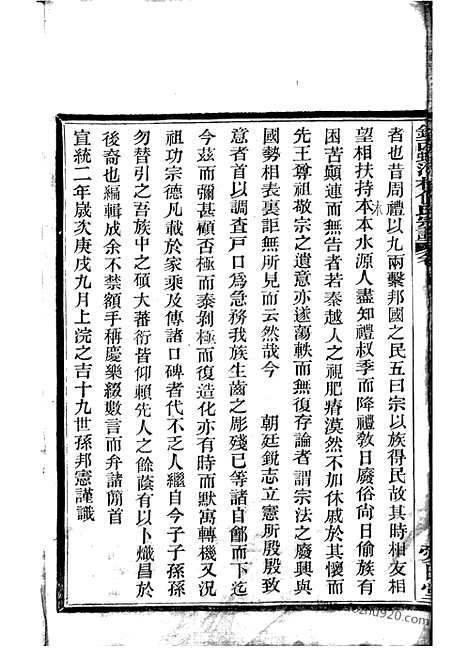 者也昔周禮以九兩繫邦國之民五曰宗以族得民故其時相友相
望相扶持本本水源人盡知禮叔季而降禮敎日廢俗尚日偷族有
困苦顛連而無告者若秦越人之視肥瘠漠然不加休戚於其懷而
先王尊祖敬宗之遺意亦遂蕩軼而無復存論者謂宗法之廢興與
國勢相表裏詎無所見而云然哉今　朝廷銳志立憲所殷殷致
意者首以調查戸口爲急務我族生齒之彫殘已等諸自鄶而下迄
今茲而彌甚顧否極而泰剝極而復造化亦有時而默寓轉機又况
祖功宗德凡載於家乘及傳諸口碑者代不乏人繼自今子子孫孫
勿替引之吾族中之碩大蕃衍皆仰賴先人之餘蔭有以卜熾昌於
後裔也編輯成余不禁額手稱慶樂綴數言而弁諸簡首
宣統二年歲次庚戌九月上浣之吉十九世孫邦憲謹識
shuzhai920.com